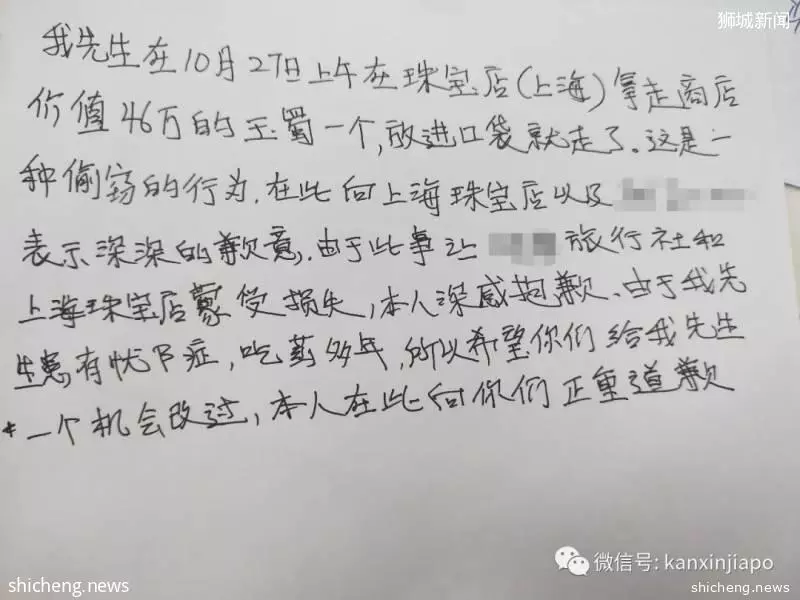 狮城新闻
我先生在10月27日上午在珠宝店(上海)拿走商店
价值46万的玉蜀一个,放进口袋就走了.这是一
种偷窃的行为.在此向上海珠宝店以及
表示深深的歉意,由于此事让 旅行社和
上海珠宝店蒙受损失,本人深感抱歉、由于我先
生患有忧下症,吃药多年,所以希望你们给我先生
*一个机会改过,本人在此向你们正重道歉
微信号: kanxinjiapo
shicheng.news
shicheng.news